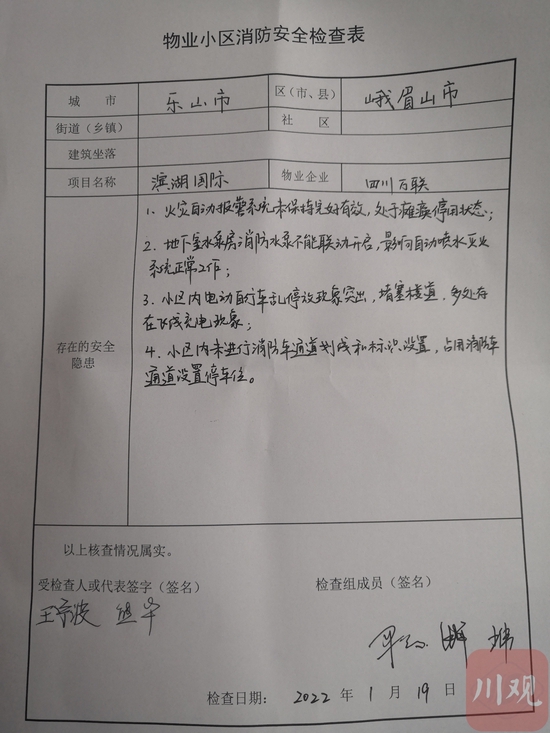 物业小区消防安全检查表
城 市 乐山市 区(市、县) 峨眉山市
街道(乡镇) 社 区
建筑坐落
项目名称 滨湖国际 物业企业 四川百联
1、火灾自动报警系统未保持完好有效,处于瘫痪停用状态;
2、地下室水泵房消防水泵不能联动开启,影响自动喷水灭火
系统正常工作;
3、小区内电动自行车乱停放现象突出,堵塞楼道,多处存
在飞线充电现象;
存在的安全
隐患
4、小区内未进行消防车通道划线和标识设置,占用消防车
通道设置停车位。
以上核查情况属实。
受检查人或代表签字(签名) 检查组成员(签名)
检查日期: 2022 年 1 月 19 日
川观